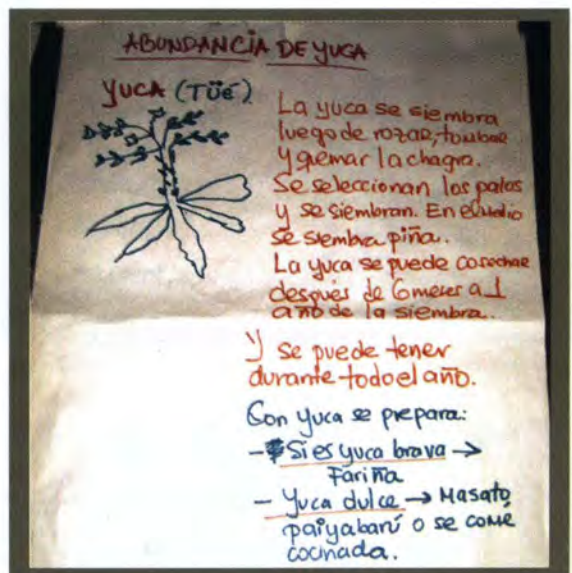 ABUNDANCIA DE YUCA
YUCA (Tüé)
La yuca se siembra
luego de rozar, tumbar
y quemar la chagra.
Se seleccionan los palos
y se siembran. En el medio
se siembra piña.
La yuca se puede cosechar
después de 6 meses a 1
año de la siembra.
Y se puede tener
durante todo el año.
Con yuca se prepara:
- Si es yuca brava →
Fariña
- Yuca dulce → Masato,
paiyabarú o se come
cocinada.